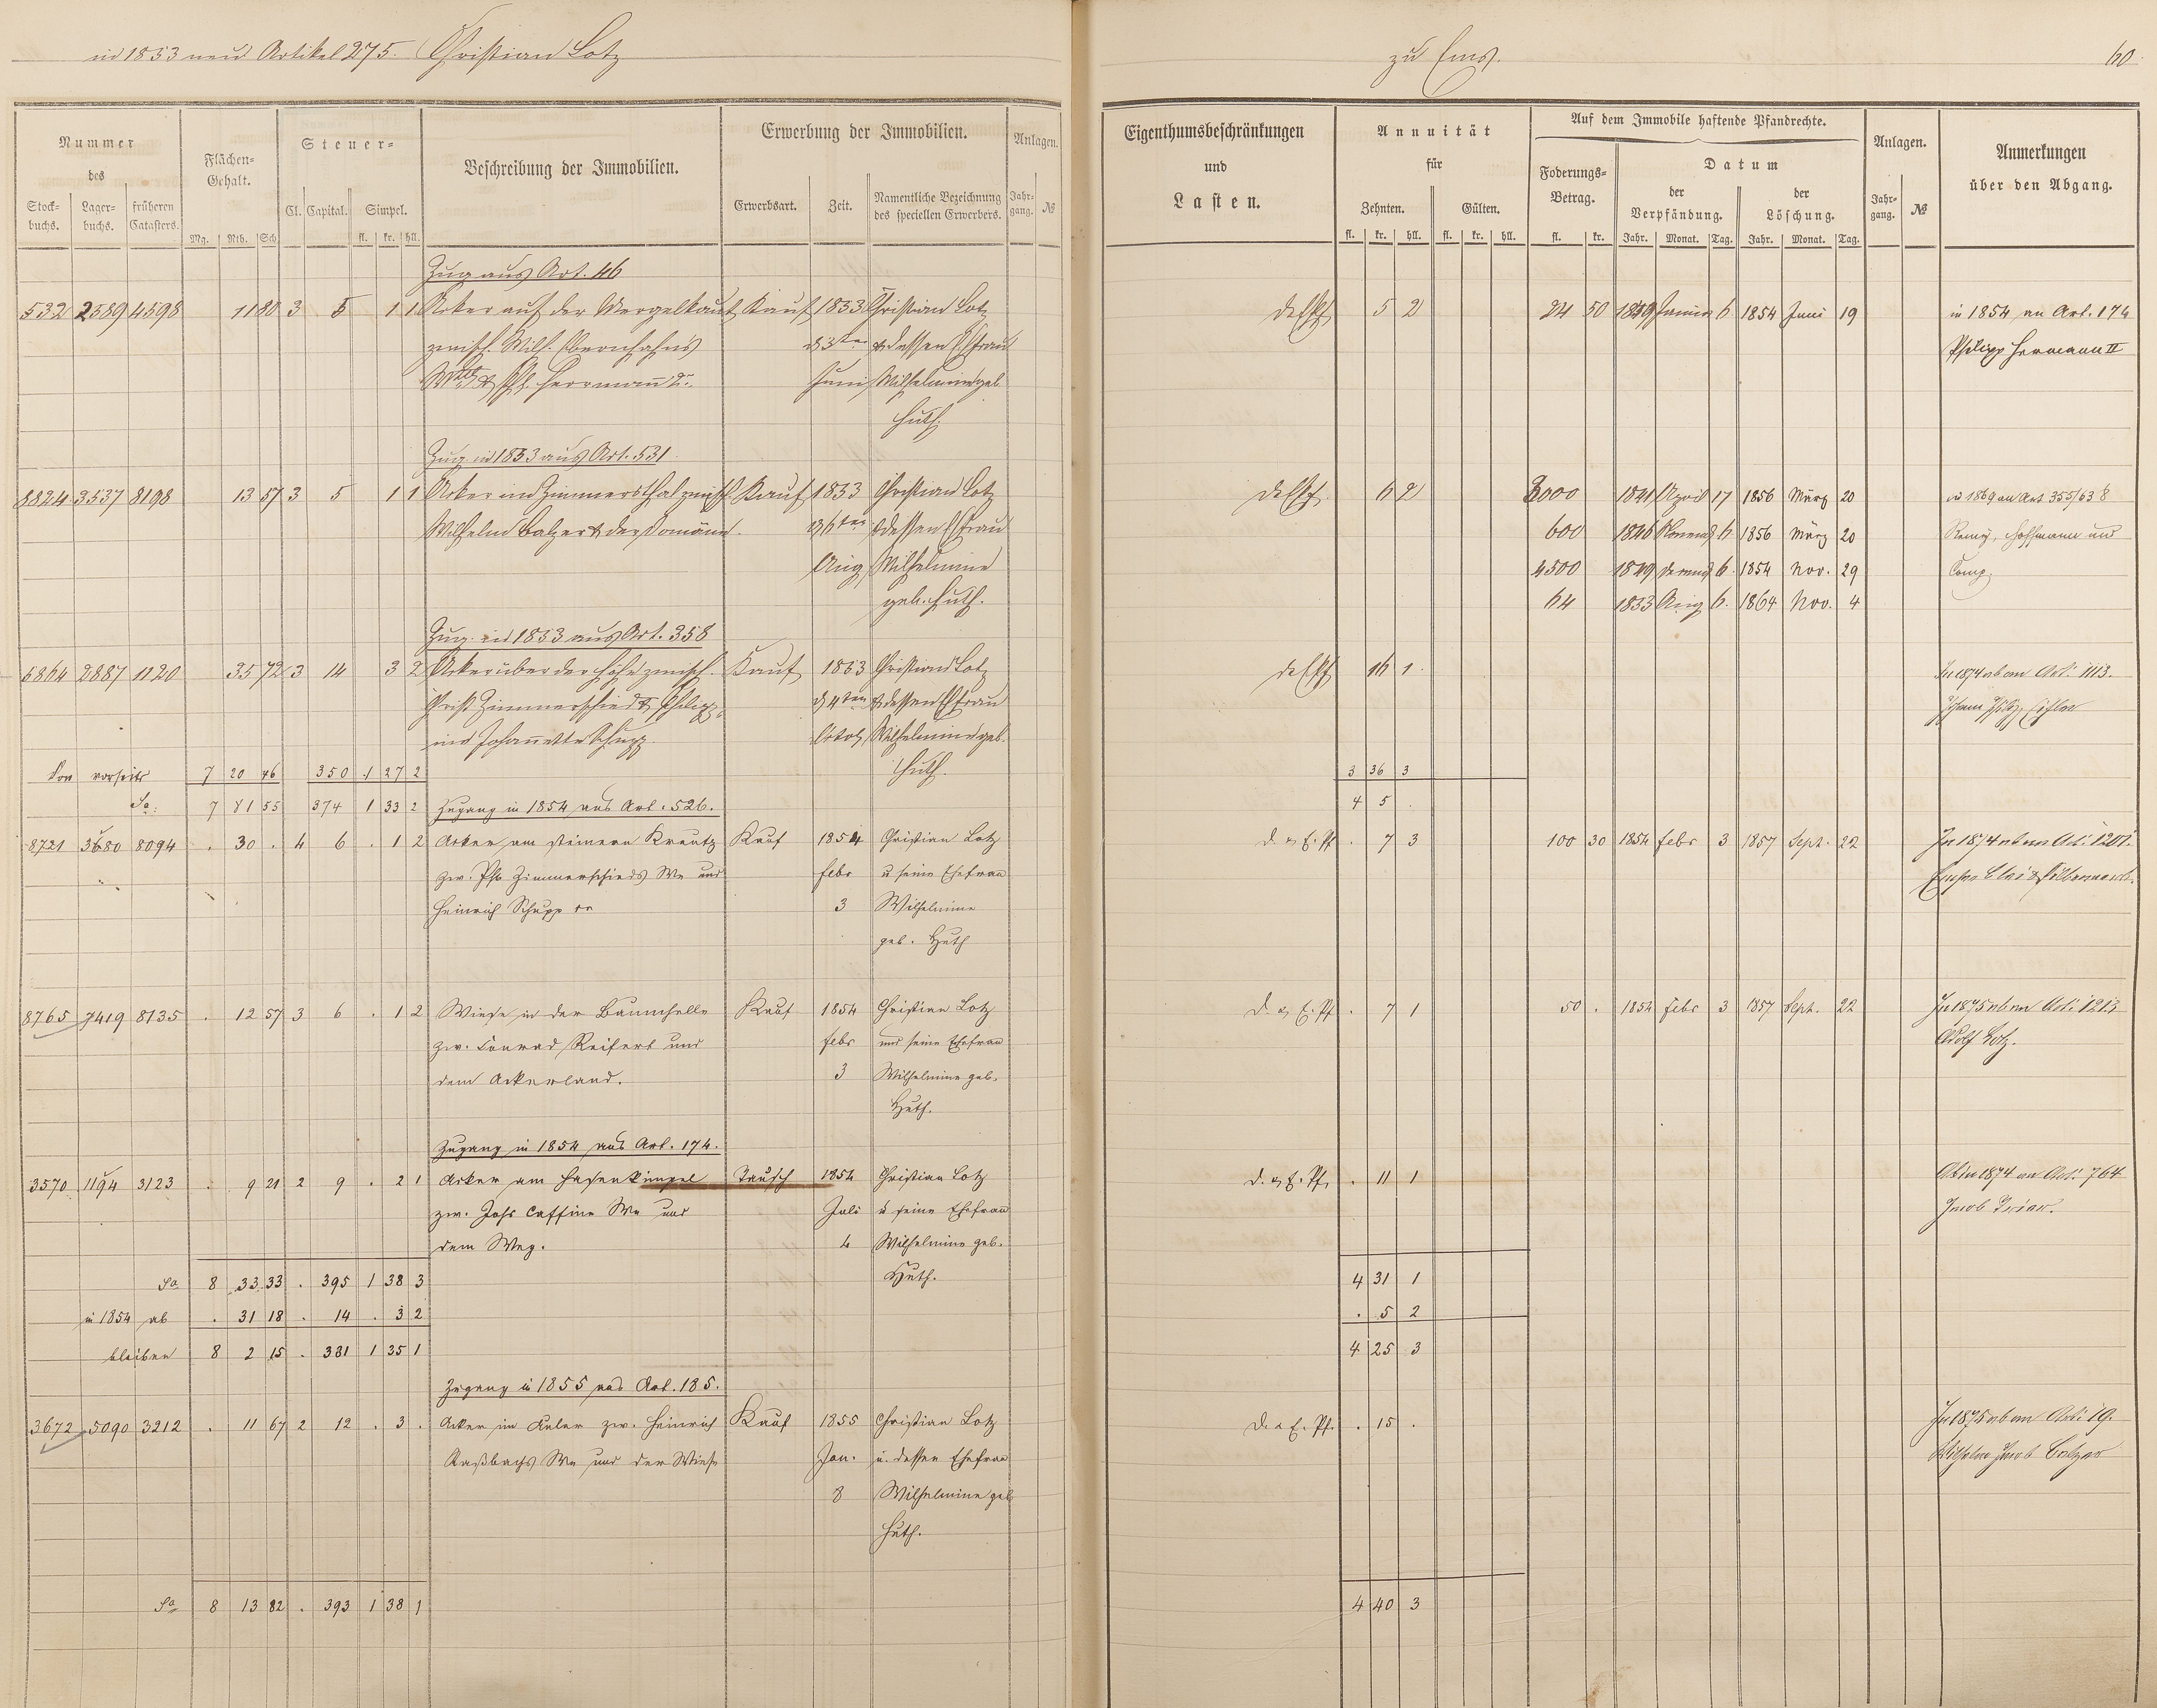 in 1853 neu Artikel 275. Christian Lotz
zu Ems.
60.
Nummer des
Stock-buchs. Lager-buchs. früheren Catasters.
Flächen-Gehalt.
Mg. Rth. Sch.
Steuer-
Cl. Capital. Simpel.
fl. kr. hll.
Beschreibung der Immobilien.
Erwerbung der Immobilien.
Erwerbsart. Zeit. Namentliche Bezeichnung des speciellen Erwerbers.
Anlagen.
Jahr-gang. №
Eigenthumsbeschränkungen
und
Lasten.
Annuität
für
Zehnten. Gülten.
fl. kr. hll. fl. kr. hll.
Auf dem Immobile haftende Pfandrechte.
Foderungs-Betrag.
fl. kr.
Datum
der Verpfändung. der Löschung.
Jahr. Monat. Tag. Jahr. Monat. Tag.
Anlagen.
Jahr-gang. №
Anmerkungen
über den Abgang.
Zug aus Art. 46
532 2589 4598 11 80 3 5 1 1 Acker auf der Mergelkaut Kauf 1853 Christian Lotz 5 2 24 50 1849 6 1854 Juni 19 in 1854 an Art. 174
zwisch. Wilh. d 3ten & dessen Ehefrau Philipp Hermann II
& Ph. Herrmann 2r. Juni Wilhelmine geb
Huth.
Zug. in 1853 aus Art. 531
8824 3537 8198 13 57 3 5 1 1 Acker im Zimmersthal zwisch Kauf 1853 Christian Lotz 6 2 3000 1841 April 17 1856 März 20 in 1869 an Art 355/638
Wilhelm Balzer & der Domäne. d 6ten & dessen Ehefrau 600 1846 6 1856 März 20 Remy, Hoffmann und
Aug Wilhelmine 4500 1849 6. 1854 Nov. 29 Comp.
geb. Huth. 64 1853 Aug 6. 1864 Nov. 4
Zug. in 1853 aus Art. 358
6864 2887 1120 35 72 3 14 3 2 Acker über der Höhe zwisch. Kauf 1853 Christian Lotz 16 1. In 1874 ab an Art. 1113.
Christ Zimmerschied & Philipp- d 4ten & dessen Ehefrau
ine Johannette Schupp. Octob Wilhelmine geb.
Von vorseits 7 20 46 350 1 27 2 Huth. 3 36 3
Sa: 7 81 55 374 1 33 2 Zugang in 1854 aus Art. 526. 4 5 .
8721 3680 8094 . 30 . 4 6 . 1 2 Acker am steinern Kreutz Kauf 1854 Christian Lotz d. & E. Pf. . 7 3 100 30 1854 Febr 3 1857 Sept. 22 In 1874 ab an Art. 1201.
zw. Phil Zimmerschieds We und Febr u seine Ehefrau Emser Blei & Silberwerk.
Heinrich Schupp 3 Wilhelmine
geb. Huth
8765 7419 8135 . 12 57 3 6 . 1 2 Wiese in der Baumhelle Kauf 1854 Christian Lotz d. & E. Pf . 7 1 50 . 1854 Febr 3 1857 Sept. 22 In 1875 ab an Art. 1213
zw. Conrad Reifert und Febr und seine Ehefrau Adolf Lotz.
dem Ackerland. 3 Wilhelmine geb.
Huth.
Zugang in 1854 aus Art. 174.
3570 1194 3123 . 9 21 2 9 . 2 1 Acker am Hasenkümpel Tausch 1854 Christian Lotz d. & E. Pf. . 11 1 Ab in 1874 an Art. 764
zw. Johs Caffine We und Juli u seine Ehefrau
dem Weg. 4 Wilhelmine geb.
Sa 8 33 33 . 395 1 38 3 Huth. 4 31 1
in 1854 ab . 31 18 . 14 . 3 2 . 5 2
bleiben 8 2 15 . 381 1 35 1 4 25 3
Zugang in 1855 aus Art. 185.
3672 5090 3212 . 11 67 2 12 . 3 . Acker im zw. Heinrich Kauf 1855 Christian Lotz d. & E. Pf. . 15 . In 1875 ab an Art. 19.
Raßbachs We und der Wiese Jan. u. dessen Ehefrau Wilhelm Jacob Balzer
8 Wilhelmine geb
Huth.
Sa 8 13 82 . 393 1 38 1 4 40 3